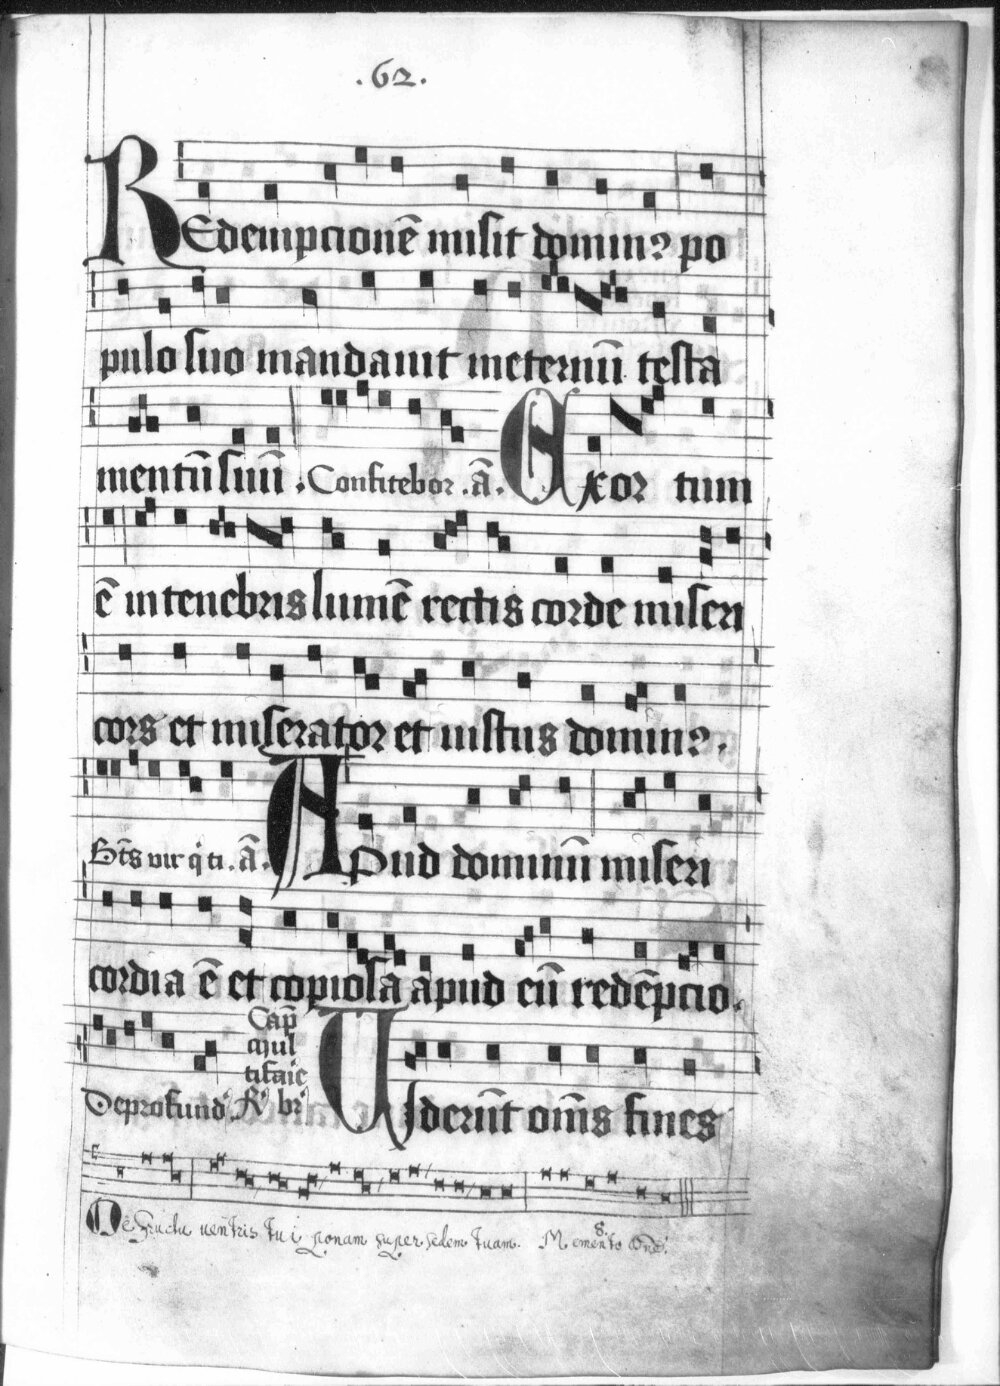 .62.
REdempcionē misit domin⁹ po
pulo suo mandauit ineternū testa
mentū suū . Confitebor . ā. Exor tum
ē intenebris lumē rectis corde miseri
cors et miserator et iustus domin⁹.
Bt̄s vir q̇ ti. ā. APud dominū miseri
cordia ē et copiosa apud eū redēpcio.
Cap̄
mul
tifaie
Deprofund' R' br' UJderūt om̄s fines
De fructu uentris tui ponam super sedem tuam. 8. Memento Dn̄e.